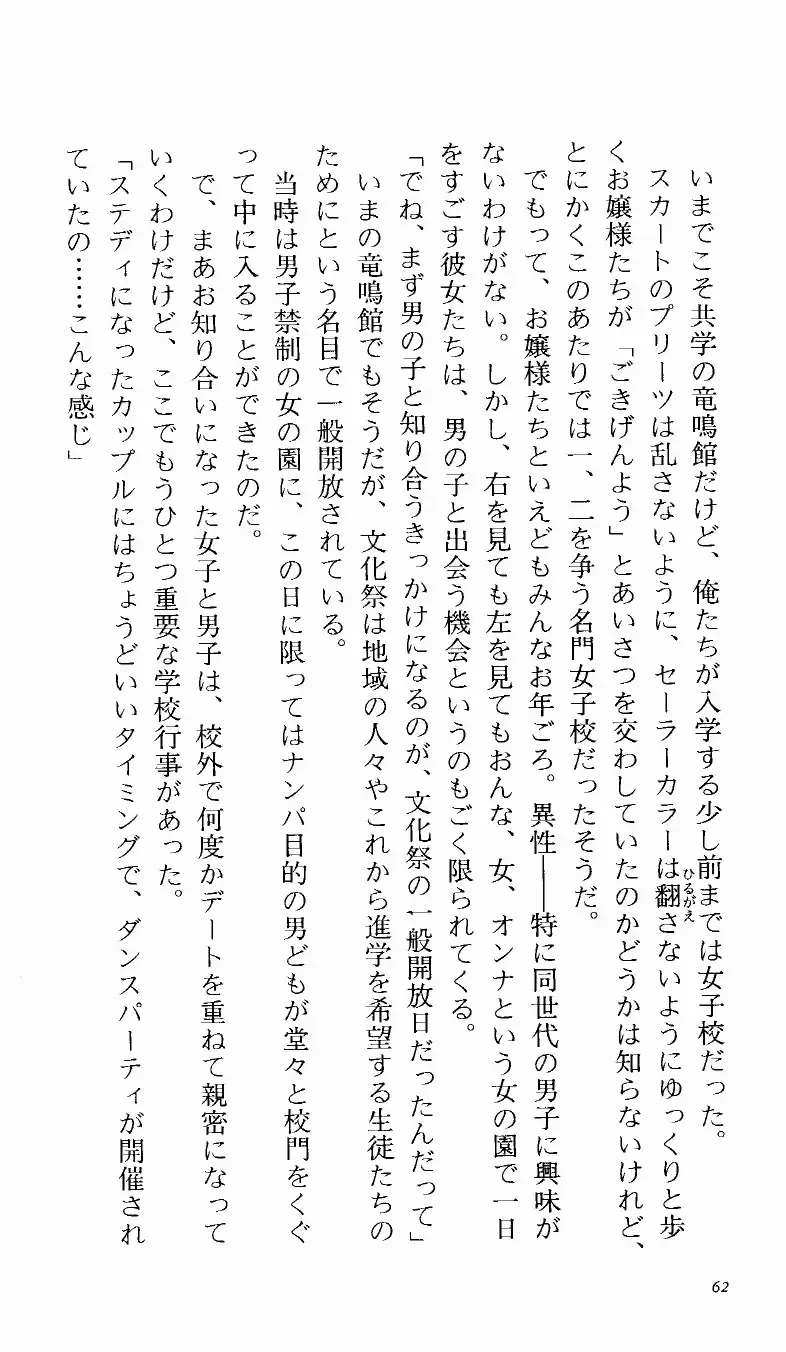 いまでこそ共学の竜鳴館だけど、俺たちが入学する少し前までは女子校だった。
スカートのプリーツは乱さないように、セーラーカラーは翻さないようにゆっくりと歩
ひるがえ
くお嬢様たちが「ごきげんよう」とあいさつを交わしていたのかどうかは知らないけれど、
とにかくこのあたりでは一、二を争う名門女子校だったそうだ。
でもって、お嬢様たちといえどもみんなお年ごろ。異性――特に同世代の男子に興味が
ないわけがない。しかし、右を見ても左を見てもおんな、女、オンナという女の園で一日
をすごす彼女たちは、男の子と出会う機会というのもごく限られてくる。
「でね、まず男の子と知り合うきっかけになるのが、文化祭の一般開放日だったんだって」
いまの竜鳴館でもそうだが、文化祭は地域の人々やこれから進学を希望する生徒たちの
ためにという名目で一般開放されている。
当時は男子禁制の女の園に、この日に限ってはナンパ目的の男どもが堂々と校門をくぐ
って中に入ることができたのだ。
で、まあお知り合いになった女子と男子は、校外で何度かデートを重ねて親密になって
いくわけだけど、ここでもうひとつ重要な学校行事があった。
「ステディになったカップルにはちょうどいいタイミングで、ダンスパーティが開催され
ていたの……こんな感じ」
62